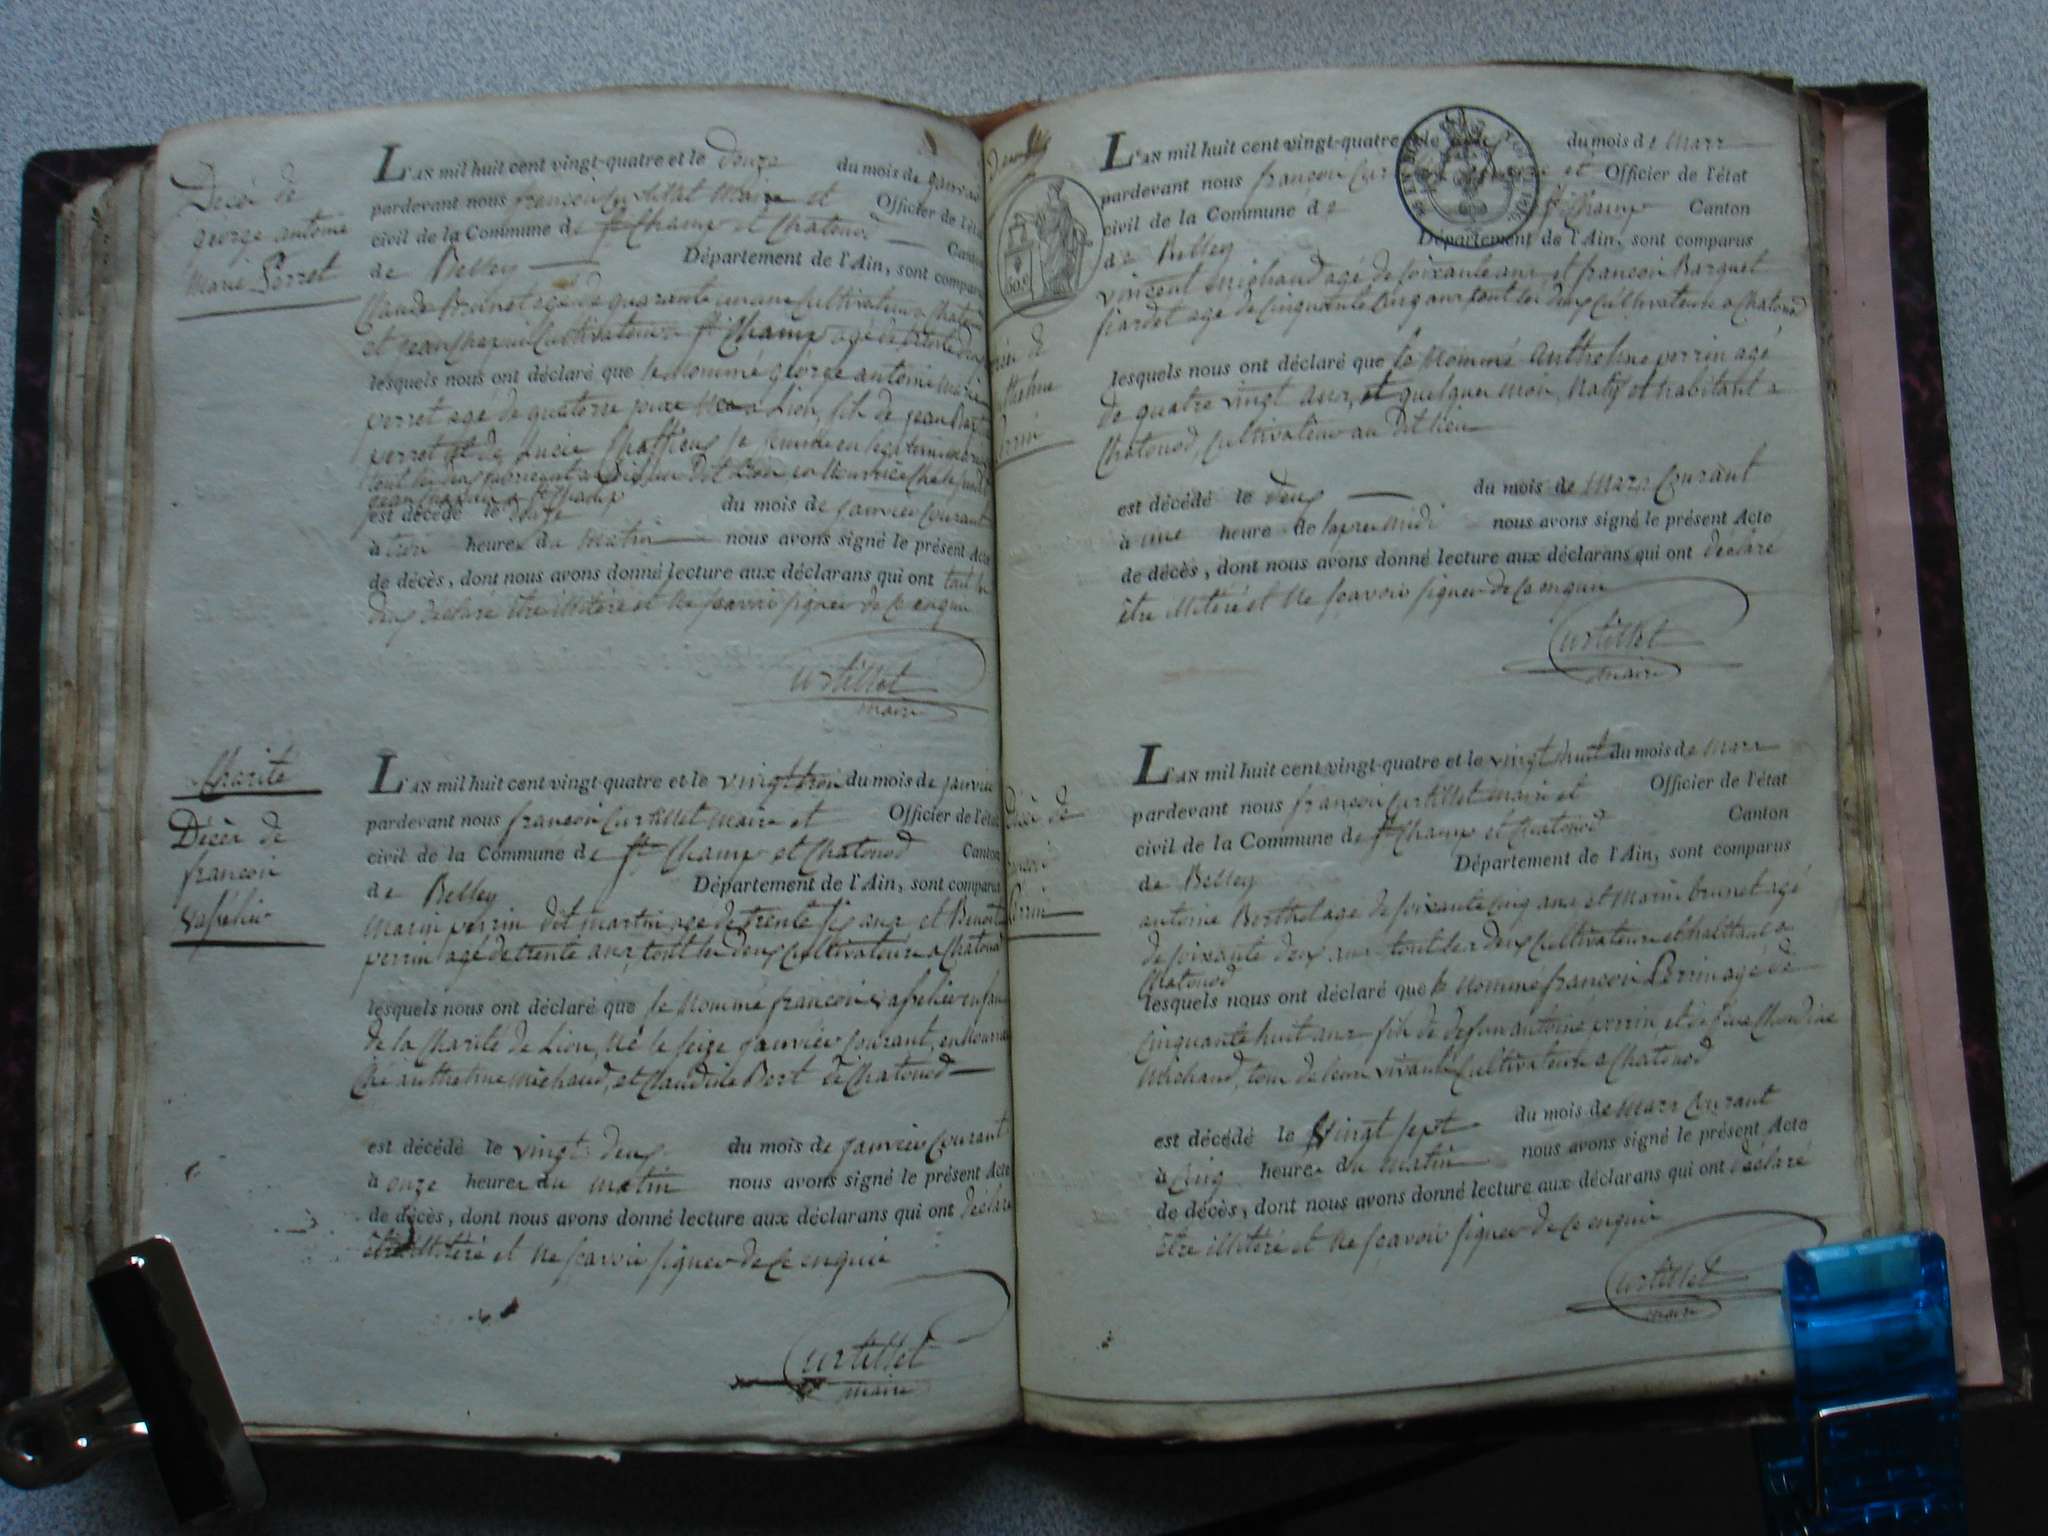 Décès de
george antoine
Marie Perret
L'AN mil huit cent vingt-quatre et le douze du mois de janvier
pardevant nous françois Curtillet Maire et Officier de l'état
civil de la Commune de St Champ et Chatonod Canton
de Belley Département de l'Ain, sont comparus
Claude Brunet agé de quarante un ans Cultivateur a Chatonod
et jean Cultivateur a St Champ agé de trente
lesquels nous ont déclaré que le Nommé géorge antoine Marie
perret agé de quatorze jour a Lion, fils de jean
perret et de Lucie
est décédé le douze du mois de janvier Courant
à trois heures du Matin nous avons signé le présent Acte
de décès, dont nous avons donné lecture aux déclarans qui ont tout les
deux declaré être illitéré et Ne scavoir signer de ce enquis
Curtillet
maire
Charité
Décès de
françois
L'AN mil huit cent vingt-quatre et le vingt trois du mois de janvier
pardevant nous françois Curtillet Maire et Officier de l'état
civil de la Commune de St Champ et Chatonod Canton
de Belley Département de l'Ain, sont comparus
Marin perrin dit martin, agé de trente six ans et Benoit
perrin agé de trente ans, tout les deux Cultivateur a Chatonod
lesquels nous ont déclaré que le Nommé françois enfant
de la Charité de Lion, Né le seize janvier Courant, en Nourrice
Ché anthelme Michaud, et Claudine Bort de Chatonod
est décédé le vingt deux du mois de janvier Courant
à onze heures du matin nous avons signé le présent Acte
de décès, dont nous avons donné lecture aux déclarans qui ont déclaré
être illitéré et Ne scavoir signer de ce enquis
Curtillet
maire
L'AN mil huit cent vingt-quatre et le du mois de Mars
pardevant nous françois Cur et Officier de l'état
civil de la Commune de St Champ Canton
de Belley Département de l'Ain, sont comparus
vincent Michaud agé de soixante ans, et françois Barquet
agé de Cinquante Cinq ans tout les deux Cultivateur a Chatonod
lesquels nous ont déclaré que le Nommé Anthelme perrin agé
de quatre vingt ans, et quelques mois, Natif et habitant a
Chatonod, Cultivateur au Dit lieu
est décédé le deux du mois de Mars Courant
à une heure de lapres Midi nous avons signé le présent Acte
de décès, dont nous avons donné lecture aux déclarans qui ont déclaré
être illitéré et Ne scavoir signer de ce enquis
Curtillet
maire
Décès de
françois
Perrin
L'AN mil huit cent vingt-quatre et le vingt huit du mois de Mars
pardevant nous françois Curtillet maire et Officier de l'état
civil de la Commune de St Champ et Chatonod Canton
de Belley Département de l'Ain, sont comparus
antoine Berthet agé de soixante cinq ans et Marin brunet agé
de soixante deux ans tout les deux Cultivateur et habitant a
Chatonod
lesquels nous ont déclaré que le Nommé françois Perrin agé de
Cinquante huit ans fils de defun antoine perrin et de Claudine
Michaud, tous de leur vivant Cultivateur a Chatonod
est décédé le vingt sept du mois de Mars Courant
à Cinq heures du Matin nous avons signé le présent Acte
de décès, dont nous avons donné lecture aux déclarans qui ont déclaré
être illitéré et Ne scavoir signer de ce enquis
Curtillet
maire